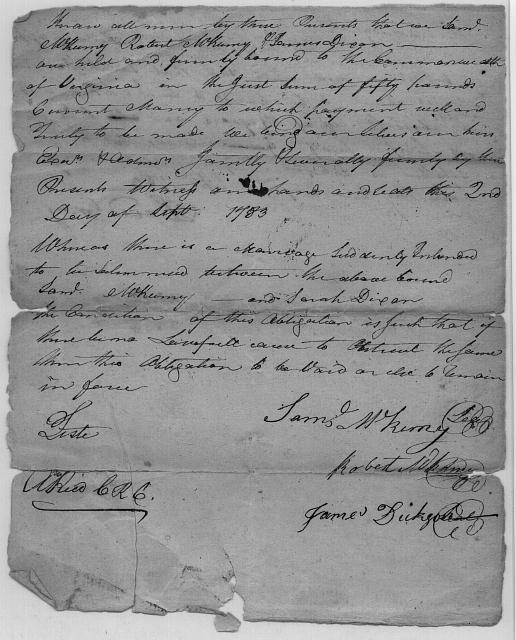 Know all men by these Presents that we Saml.
McKemy Robert McKemy & James Dixon
are held and firmly bound to the Commonwealth
of Virginia in the Just Sum of fifty pounds
Current Money to which payment well and
Truly to be made we bind our selves our heirs
Exors & Admrs Jointly & Severally firmly by these
Presents Witness our hands and seals this 2nd
Day of Sept. 1783
Whereas there is a Marriage Suddenly Intended
to be Solemnized between the above bound
Saml. McKemy — and Sarah Dixon
the Condition of this Obligation is Such that if
there be no Lawfull cause to Obstruct the same
then this Obligation to be Void or else to Remain
in force
Saml. McKemy
Teste
Robert McKemy
A Reid C R C.
James